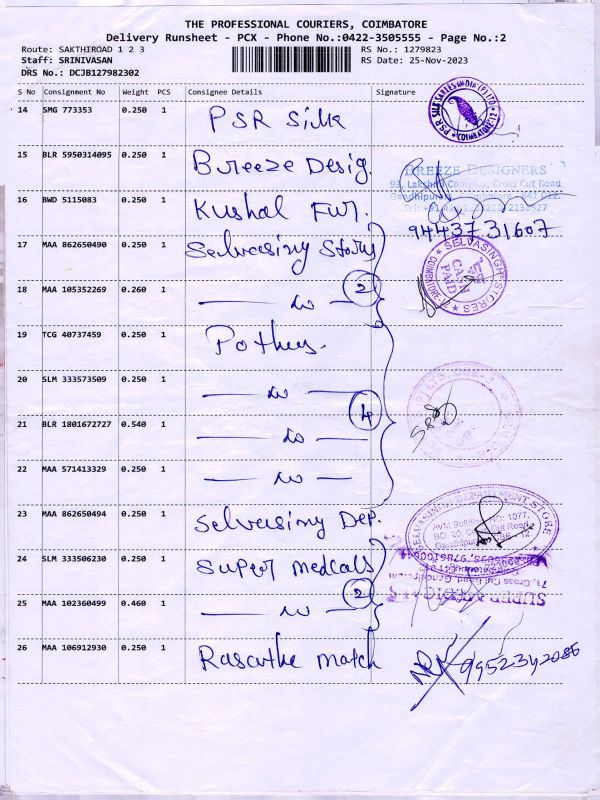 THE PROFESSIONAL COURIERS, COIMBATORE
Delivery Runsheet - PCX - Phone No.:0422-3505555 - Page No.:2
Route: SAKTHIROAD 1 2 3
RS No.: 1279823
Staff: SRINIVASAN
RS Date: 25-Nov-2023
DRS No.: DCJB127982302
S No Consignment No Weight PCS Consignee Details Signature
14 SMG 773353 0.250 1 PSR Silk
PSR SILK SAREES INDIA (P) LTD COIMBATORE-12
15 BLR 5950314095 0.250 1 Breeze Desig.
BREEZE DESIGNERS
93, Lakshmi Complex, Cross Cut Road
16 BWD 5115083 0.250 1 Kushal Fur.
9443731607
17 MAA 862650490 0.250 1 Selvasing Stors
SELVASINGH STORES COIMBATORE
CASH PAID
18 MAA 105352269 0.260 1 — do — 2
19 TCG 40737459 0.250 1 Pothys.
20 SLM 333573509 0.250 1 — do —
21 BLR 1801672727 0.540 1 — do — 4
22 MAA 571413329 0.250 1 — do —
23 MAA 862650494 0.250 1 Selvasing Dep.
SELVASINGH DEPARTMENT STORE
24 SLM 333506230 0.250 1 Super medcals
71, Cross Cut Road, Gandhipuram
SUPER MEDICALS
25 MAA 102360499 0.460 1 — do — 2
26 MAA 106912930 0.250 1 Rasathe match
9952342086